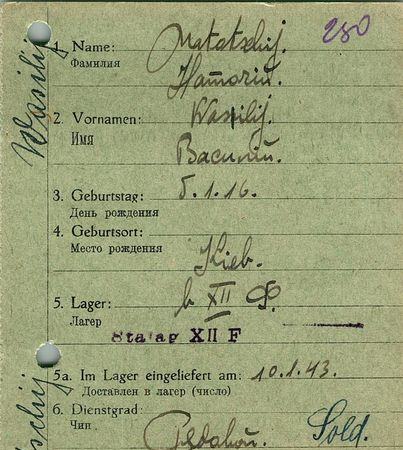 280
1. Name: Matatschij.
Фамилия
2. Vornamen: Wasilij.
Имя Василий.
3. Geburtstag: 5.1.16.
День рождения
4. Geburtsort:
Место рождения
Kieb.
5. Lager: b XII Ф.
Лагер
Stalag XII F
5a. Im Lager eingeliefert am: 10.1.43.
Доставлен в лагер (число)
6. Dienstgrad: Sold.
Чин
Wasilij